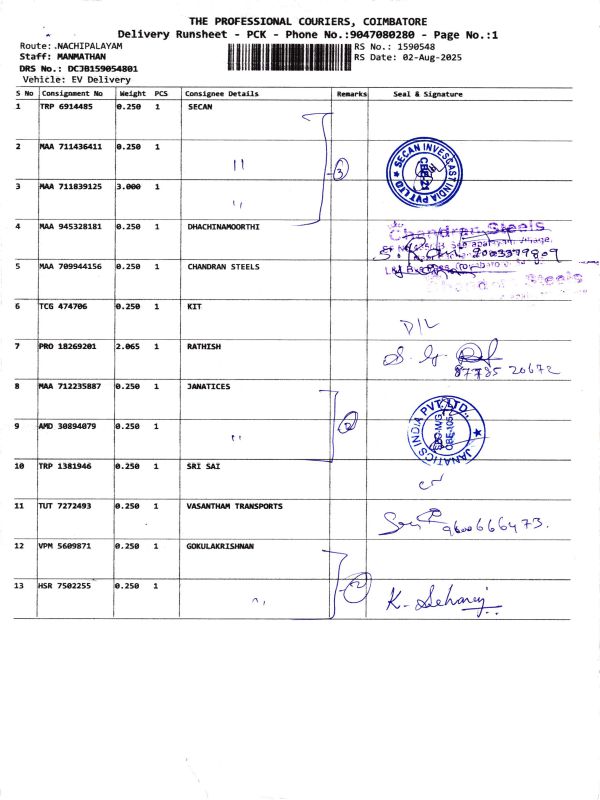 THE PROFESSIONAL COURIERS, COIMBATORE
Delivery Runsheet - PCK - Phone No.:9047080280 - Page No.:1
Route: NACHIPALAYAM RS No.: 1590548
Staff: MANMATHAN RS Date: 02-Aug-2025
DRS No.: DCJB159054801
Vehicle: EV Delivery
S No Consignment No Weight PCS Consignee Details Remarks Seal & Signature
1 TRP 6914485 0.250 1 SECAN
2 MAA 711436411 0.250 1 " 3 SECAN INVESCAST INDIA PVT LTD
3 MAA 711839125 3.000 1 "
4 MAA 945328181 0.250 1 DHACHINAMOORTHI Chandran Steels
9003379809
5 MAA 709944156 0.250 1 CHANDRAN STEELS Chandran Steels
6 TCG 474706 0.250 1 KIT D/L
7 PRO 18269201 2.065 1 RATHISH
87785 20672
8 MAA 712235887 0.250 1 JANATICES
9 AMD 30894079 0.250 1 " 2 JANATICS INDIA PVT. LTD.,
10 TRP 1381946 0.250 1 SRI SAI
11 TUT 7272493 0.250 1 VASANTHAM TRANSPORTS 9600666473.
12 VPM 5609871 0.250 1 GOKULAKRISHNAN
13 HSR 7502255 0.250 1 " 2